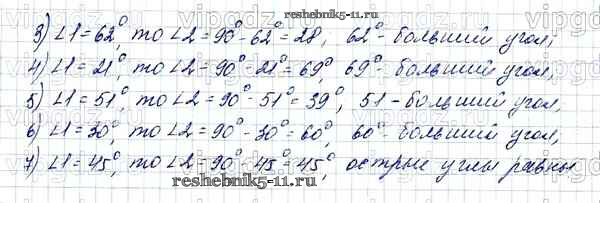 reshebnik5-11.ru
3) ∠1=62°, то ∠2=90°-62°=28, 62°- больший угол;
4) ∠1=21°, то ∠2=90°-21°=69°, 69°- больший угол;
5) ∠1=51°, то ∠2=90°-51°=39°, 51-больший угол,
6) ∠1=30°, то ∠2=90°-30°=60°, 60°- больший угол;
7) ∠1=45°, то ∠2=90°-45°=45°, острые углы равны
reshebnik5-11.ru